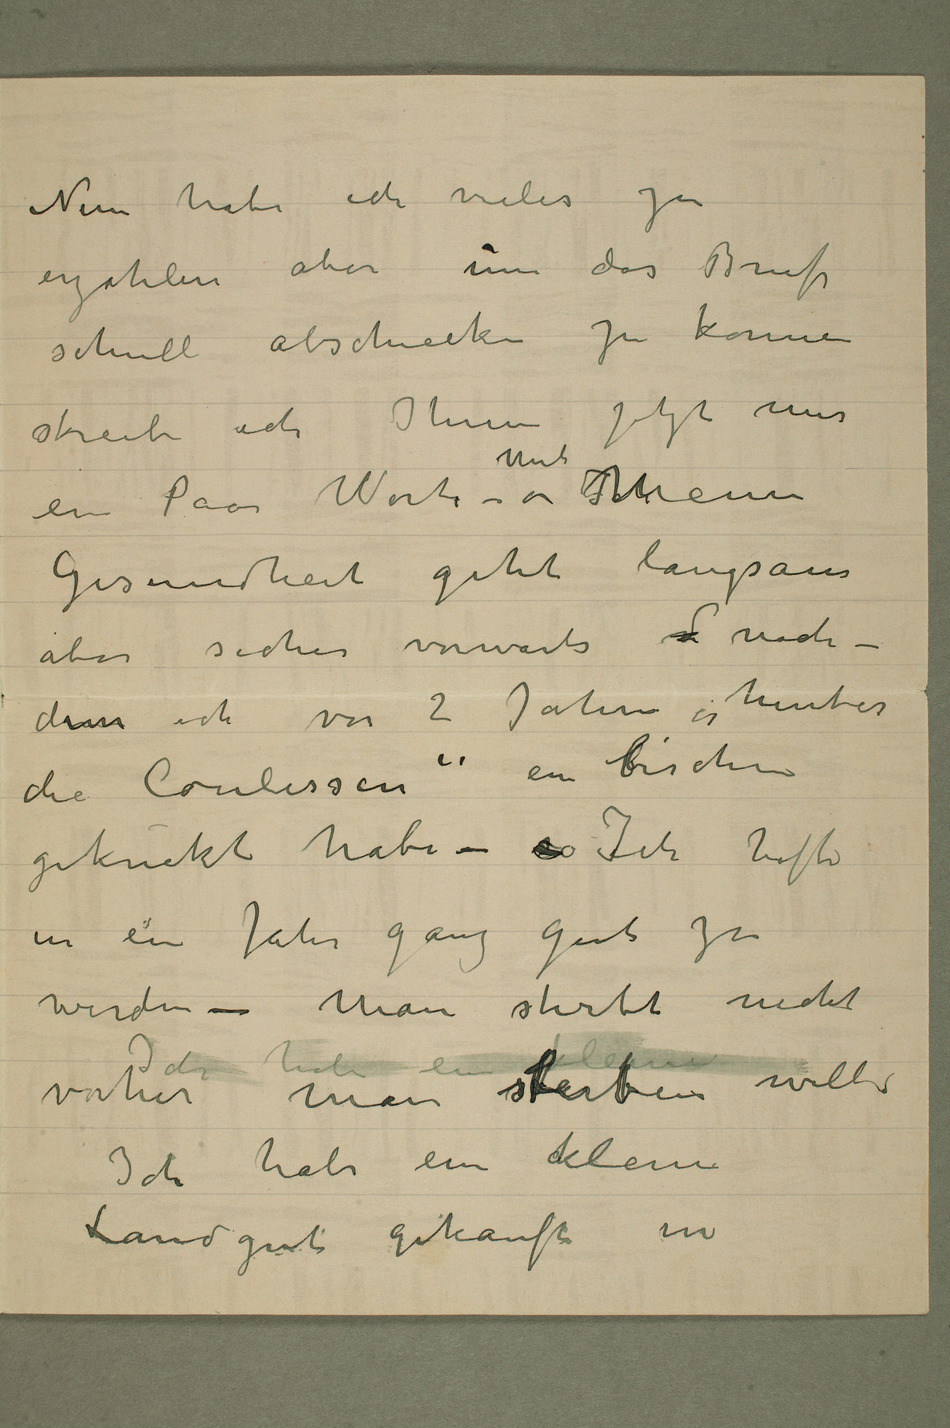 Nun habe ich vieles zu
erzahlen aber um das Brief
schnell abschicken zu konnen
skreibe ich Ihnen jetzt nur
ein Paar Worte – Mit Meine
Gesundheit geht langsam
aber sicher vorwarts nach–
dem ich vor 2 Jahren „hinter
die Coulissen" ein bischen
gekuckt habe – Ich hoffe
in ein Jahr ganz gut zu
werden – Man stirbt nicht
Ich habe ein kleine
vorher man sterben will
Ich habe ein kleine
Landgut gekauft in